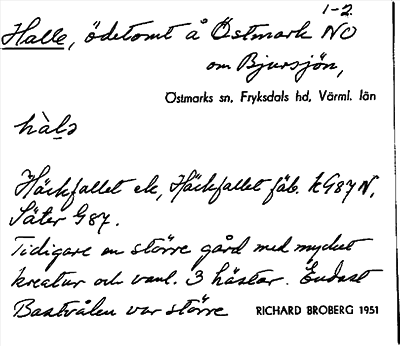 1-2
Halle, ödetomt å Östmark NO
om Bjursjön,
Östmarks sn, Fryksdals hd, Värml. län
hàlə
Häckfallet ek, Häckfallet fäb. kG87N,
Säter G87.
Tidigare en större gård med mycket
kreatur och vanl. 3 hästar. Endast
Bastvålen var större
RICHARD BROBERG 1951